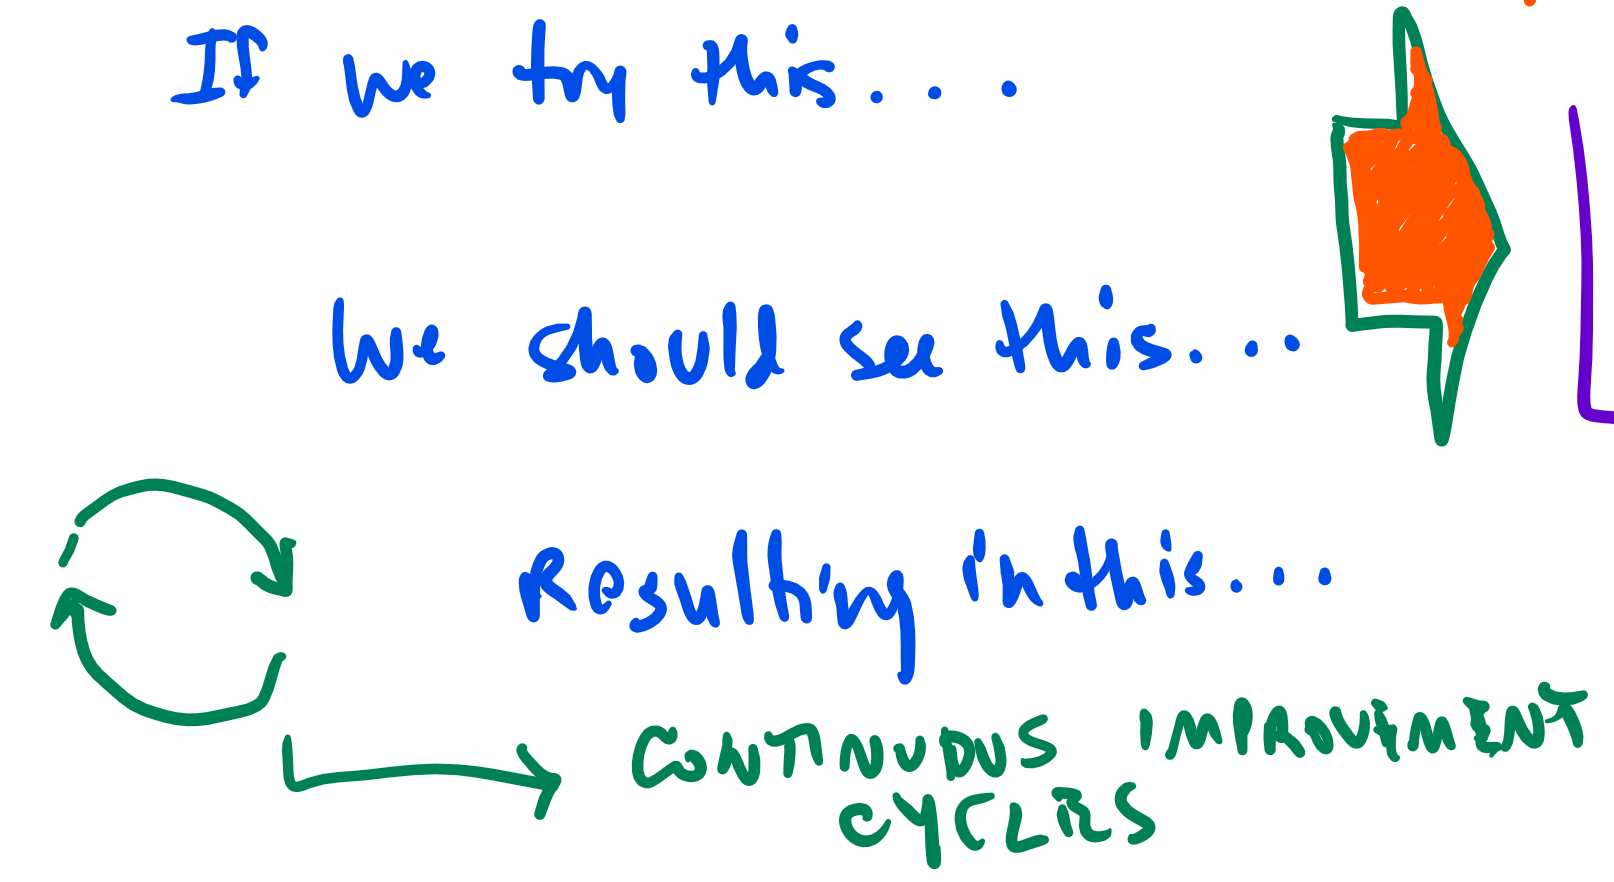 If we try this...
We should see this...
Resulting in this...
CONTINUOUS IMPROVEMENT
CYCLES